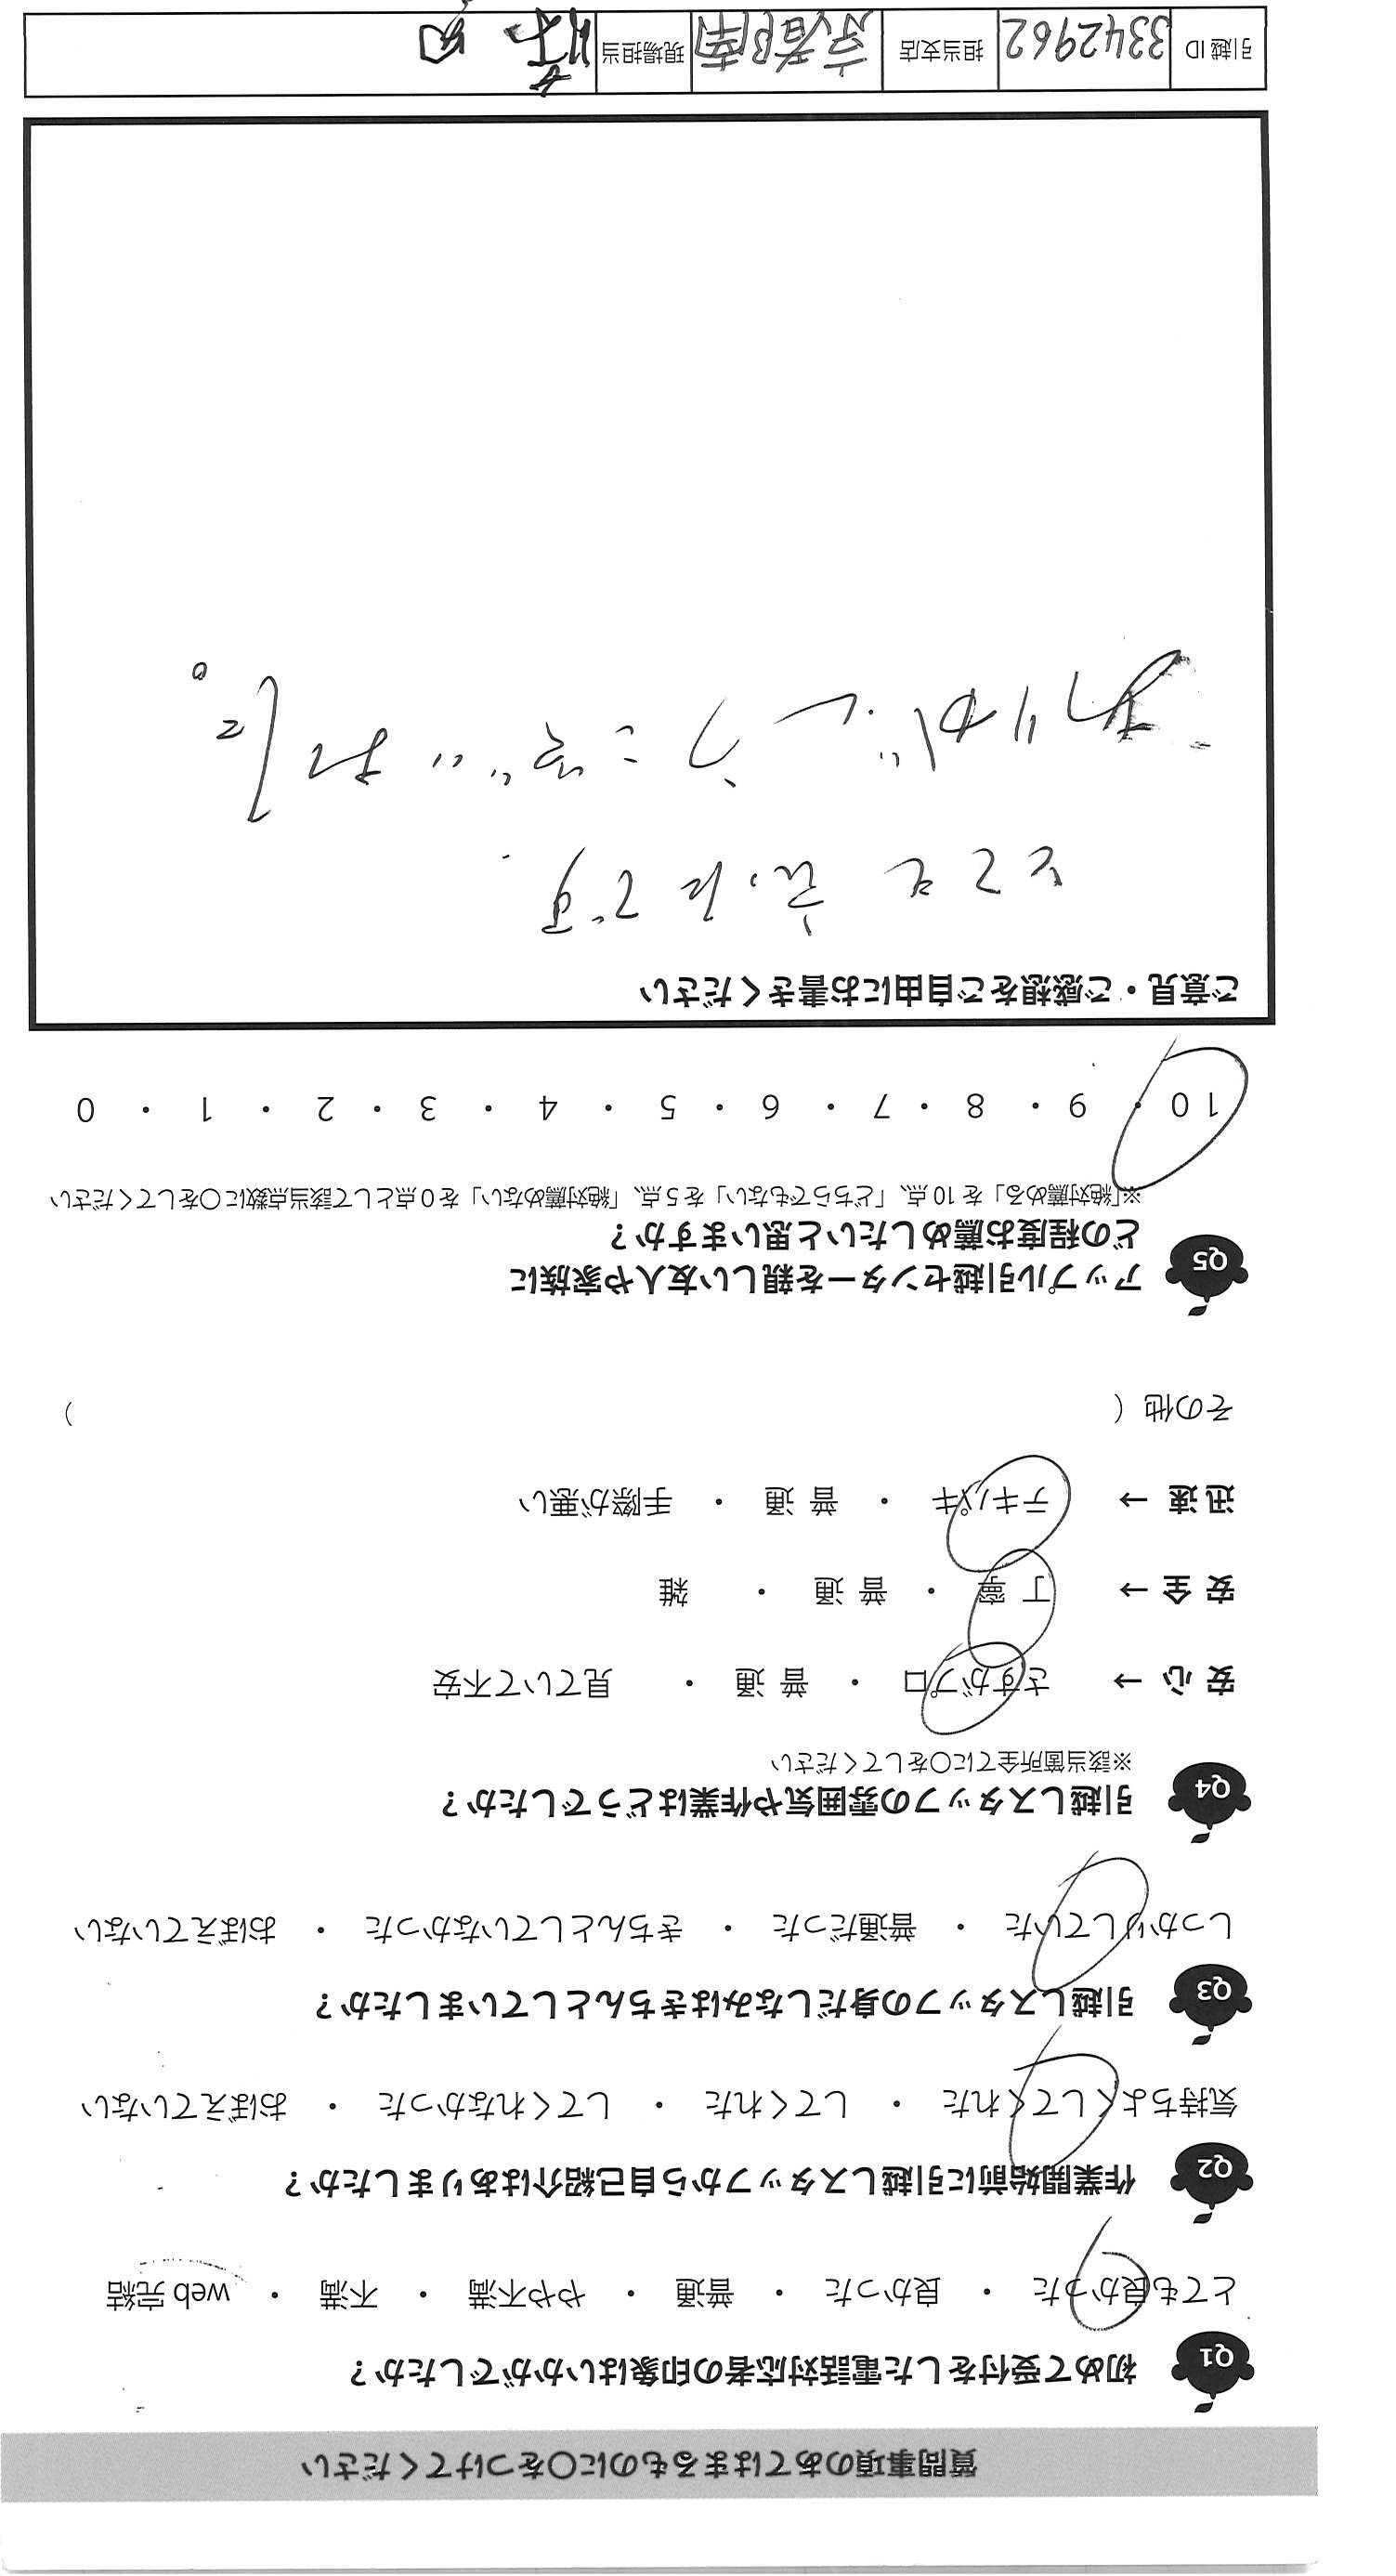 質問事項のあてはまるものに〇をつけてください
Q1 初めて受付をした電話対応者の印象はいかがでしたか？
とても良かった ・ 良かった ・ 普通 ・ やや不満 ・ 不満 ・ web 完結
Q2 作業開始前に引越しスタッフから自己紹介はありましたか？
気持ちよくしてくれた ・ してくれた ・ してくれなかった ・ おぼえていない
Q3 引越しスタッフの身だしなみはきちんとしていましたか？
しっかりしていた ・ 普通だった ・ きちんとしていなかった ・ おぼえていない
Q4 引越しスタッフの雰囲気や作業はどうでしたか？
※該当箇所全てに〇をしてください
安 心 → さすがプロ ・ 普 通 ・ 見ていて不安
安 全 → 丁 寧 ・ 普 通 ・ 雑
迅 速 → テキパキ ・ 普 通 ・ 手際が悪い
その他（ ）
Q5 アップル引越センターを親しい友人や家族に
どの程度お薦めしたいと思いますか？
※「絶対薦める」を 10 点、「どちらでもない」を 5 点、「絶対薦めない」を 0 点として該当点数に〇をしてください
10 ・ 9 ・ 8 ・ 7 ・ 6 ・ 5 ・ 4 ・ 3 ・ 2 ・ 1 ・ 0
ご意見・ご感想をご自由にお書きください
とても良かったです
ありがとうございました。
引越 ID 3342962 担当支店 京都南 現場担当